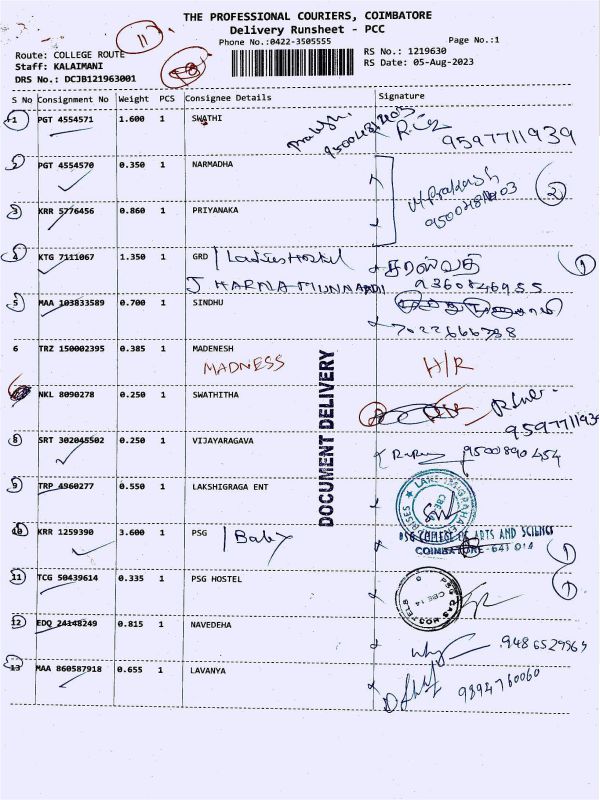 THE PROFESSIONAL COURIERS, COIMBATORE
Delivery Runsheet - PCC
11
Phone No.:0422-3505555
Page No.:1
Route: COLLEGE ROUTE
RS No.: 1219630
Staff: KALAIMANI
RS Date: 05-Aug-2023
DRS No.: DCJB121963001
S No Consignment No Weight PCS Consignee Details Signature
1 PGT 4554571 1.600 1 SWATHI
9597711939
2 PGT 4554570 0.350 1 NARMADHA
2
3 KRR 5776456 0.860 1 PRIYANAKA
4 KTG 7111067 1.350 1 GRD / Ladies Hostel
1
5 MAA 103833589 0.700 1 SINDHU
6 TRZ 150002395 0.385 1 MADENESH
MADNESS H/R
NKL 8090278 0.250 1 SWATHITHA
9597711939
8 SRT 302045502 0.250 1 VIJAYARAGAVA
9500890454
DOCUMENT DELIVERY
9 TRP 4960277 0.550 1 LAKSHIGRAGA ENT
10 KRR 1259390 3.600 1 PSG / Baby
PSG COLLEGE OF ARTS AND SCIENCE
COIMBATORE - 641 014
1
11 TCG 50439614 0.335 1 PSG HOSTEL
1
PSG CAS HOSTELS
CBE 14
12 EDQ 24148249 0.815 1 NAVEDEHA
13 MAA 860587918 0.655 1 LAVANYA
9894760060